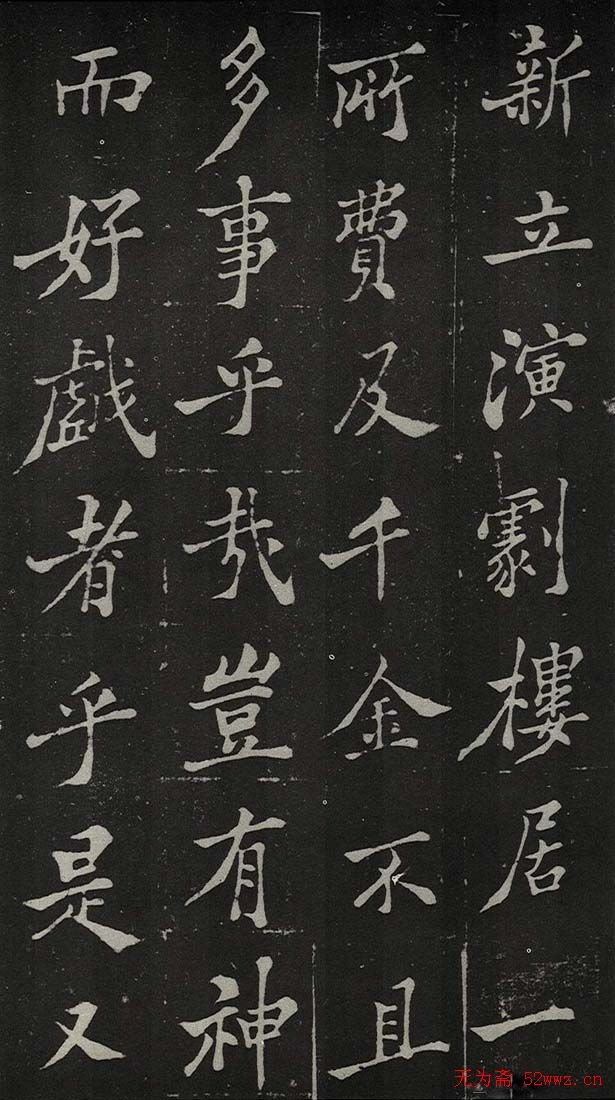 新立演劇樓居一
所費及千金不且
多事乎哉豈有神
而好戲者乎是又
无为斋 52wwz.cn